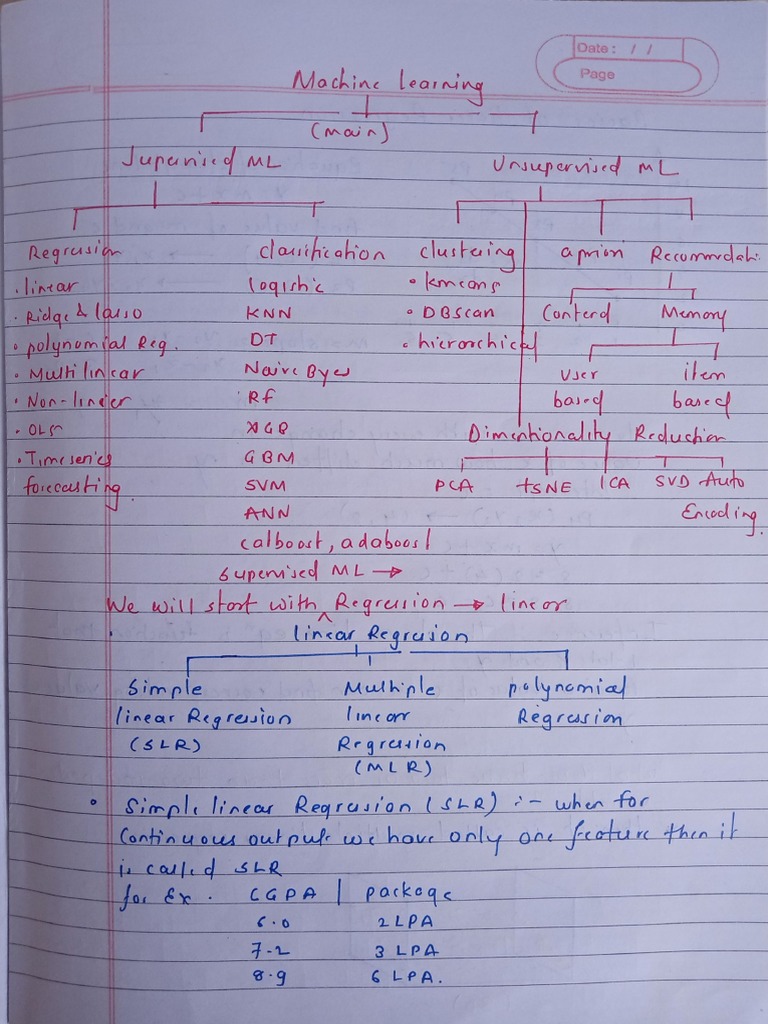 Date: / /
Page
Machine learning
(main)
Supervised ML Unsupervised ML
Regression classification clustering apriori Recommdati.
. linear logistic • kmeans Contend Memory
. Ridge & lasso KNN • DBscan
• polynomial Reg. DT • hierarchical user item
• Multilinear Naive Byes based based
• Non-linear Rf
• OLS XGB Dimentionality Reduction
• Timeseries GBM PCA tSNE ICA SVD Auto
forecasting. SVM Encoding.
ANN
catboost, adaboost
Supervised ML →
We will start with ^ Regression → linear
linear Regression
Simple Multiple polynomial
linear Regression linear Regression
(SLR) Regression
(MLR)
• Simple linear Regression (SLR) :- when for
Continuous output we have only one feature then it
is called SLR
for Ex. CGPA | package
6.0 2 LPA
7.2 3 LPA
8.9 6 LPA.